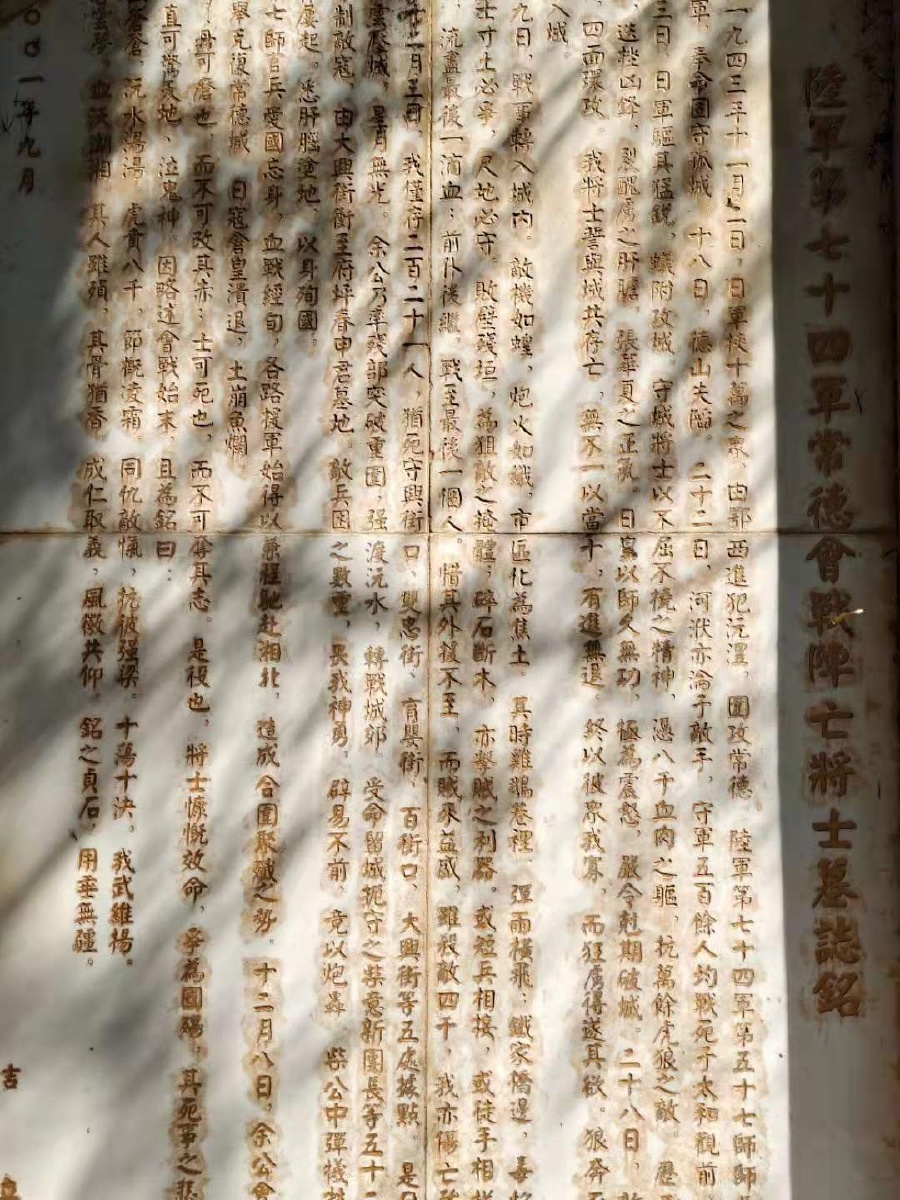 陸軍第七十四軍常德會戰陣亡將士墓誌銘
一九四三年十一月二日，日軍使十萬之眾，由鄂西進犯沅澧，圍攻常德，陸軍第七十四軍第五十七師師
軍，奉命固守孤城，十八日，德山失陷。二十二日，河洑亦淪于敵手，守軍五百餘人均戰死于太和觀前
三日，日軍驅其猛銳，蟻附攻城，守城將士以不屈不撓之精神，憑八千血肉之軀，抗萬餘虎狼之敵。歷
迭挫凶鋒，裂醜虜之肝膽，張華夏之正氣。日寇以師久無功，極為震怒，嚴令剋期破城。二十八日，敵
，四面環攻。我將士誓與城共存亡，無不一以當十，有進無退。終以彼眾我寡，而狂虜得遂其欲。狼奔
入城。
九日，戰事轉入城內。敵機如蝗，炮火如織，市區化為焦土。其時雞鵝巷裡，彈雨橫飛；鐵家橋邊，毒
士寸土必爭，尺地必守。敗壁殘垣，為狙敵之掩體；碎石斷木，亦擊賊之利器。或短兵相接，或徒手相
流盡最後一滴血；前仆後繼，戰至最後一個人。惜其外援不至，而賊眾益盛，雖殺敵四千，我亦傷亡
十二月三日，我僅存二百二十一人，猶死守興街口、雙忠街、育嬰街、百街口、大興街等五處據點。是日
雲壓城，星月無光。余公乃率殘部突破重圍，强渡沅水，轉戰城郊。受命留城扼守之柴意新團長等五十
制敵寇，由大興街衝至府坪春申君墓地。敵兵困之數重，畏我神勇，辟易不前，竟以炮轟，柴公中彈犧
屢起，悉肝腦塗地，以身殉國。
七師官兵愛國忘身，血戰經旬，各路援軍始得以兼程馳赴湘北，造成合圍聚殲之勢。十二月八日，余公會
舉克復常德城。日寇倉皇潰退，土崩魚爛。
丹可磨也，而不可改其赤；士可死也，而不可奪其志。是役也，將士慷慨效命，爭為國殤，其死事之悲
直可驚天地，泣鬼神。因略述會戰始末，且為銘曰：
蒼蒼，沅水湯湯，虎賁八千，節概凌霜。同仇敵愾，抗彼强梁。十蕩十決，我武維揚。
雲夢，血沃瀟湘。其人雖殞，其骨猶香。成仁取義，風徽共仰。銘之貞石，用垂無疆。
〇〇一年九月
吉
立